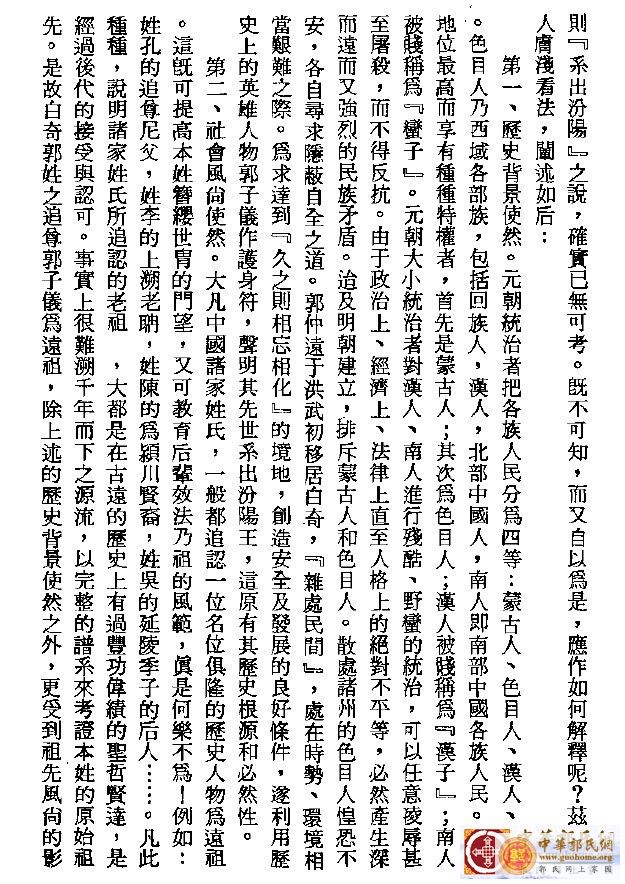 則『系出汾陽』之說，確實已無可考。旣不可知，而又自以爲是，應作如何解釋呢？茲
人膚淺看法，闡述如后：
第一、歷史背景使然。元朝統治者把各族人民分爲四等：蒙古人、色目人、漢人、
。色目人乃西域各部族，包括回族人，漢人，北部中國人，南人即南部中國各族人民。
地位最高而享有種種特權者，首先是蒙古人；其次爲色目人；漢人被賤稱爲『漢子』；南人
被賤稱爲『蠻子』。元朝大小統治者對漢人、南人進行殘酷、野蠻的統治，可以任意陵辱甚
至屠殺，而不得反抗。由于政治上、經濟上、法律上直至人格上的絕對不平等，必然產生深
而遠而又強烈的民族矛盾。迨及明朝建立，排斥蒙古人和色目人。散處諸州的色目人惶恐不
安，各自尋求隱蔽自全之道。郭仲遠于洪武初移居白奇，『雜處民間』，處在時勢、環境相
當艱難之際。爲求達到『久之則相忘相化』的境地，創造安全及發展的良好條件，遂利用歷
史上的英雄人物郭子儀作護身符，聲明其先世系出汾陽王，這原有其歷史根源和必然性。
第二、社會風尚使然。大凡中國諸家姓氏，一般都追認一位名位俱隆的歷史人物爲遠祖
。這旣可提高本姓簪纓世胄的門望，又可教育后輩效法乃祖的風範，眞是何樂不爲！例如：
姓孔的追尊尼父，姓李的上溯老聃，姓陳的爲潁川賢裔，姓吳的延陵季子的后人……。凡此
種種，說明諸家姓氏所追認的老祖　，大都是在古遠的歷史上有過豐功偉績的聖哲賢達，是
經過後代的接受與認可。事實上很難溯千年而下之源流，以完整的譜系來考證本姓的原始祖
先。是故白奇郭姓之追尊郭子儀爲遠祖，除上述的歷史背景使然之外，更受到祖先風尚的影
中華郭氏網
www.guohome.org
郭氏网上家園